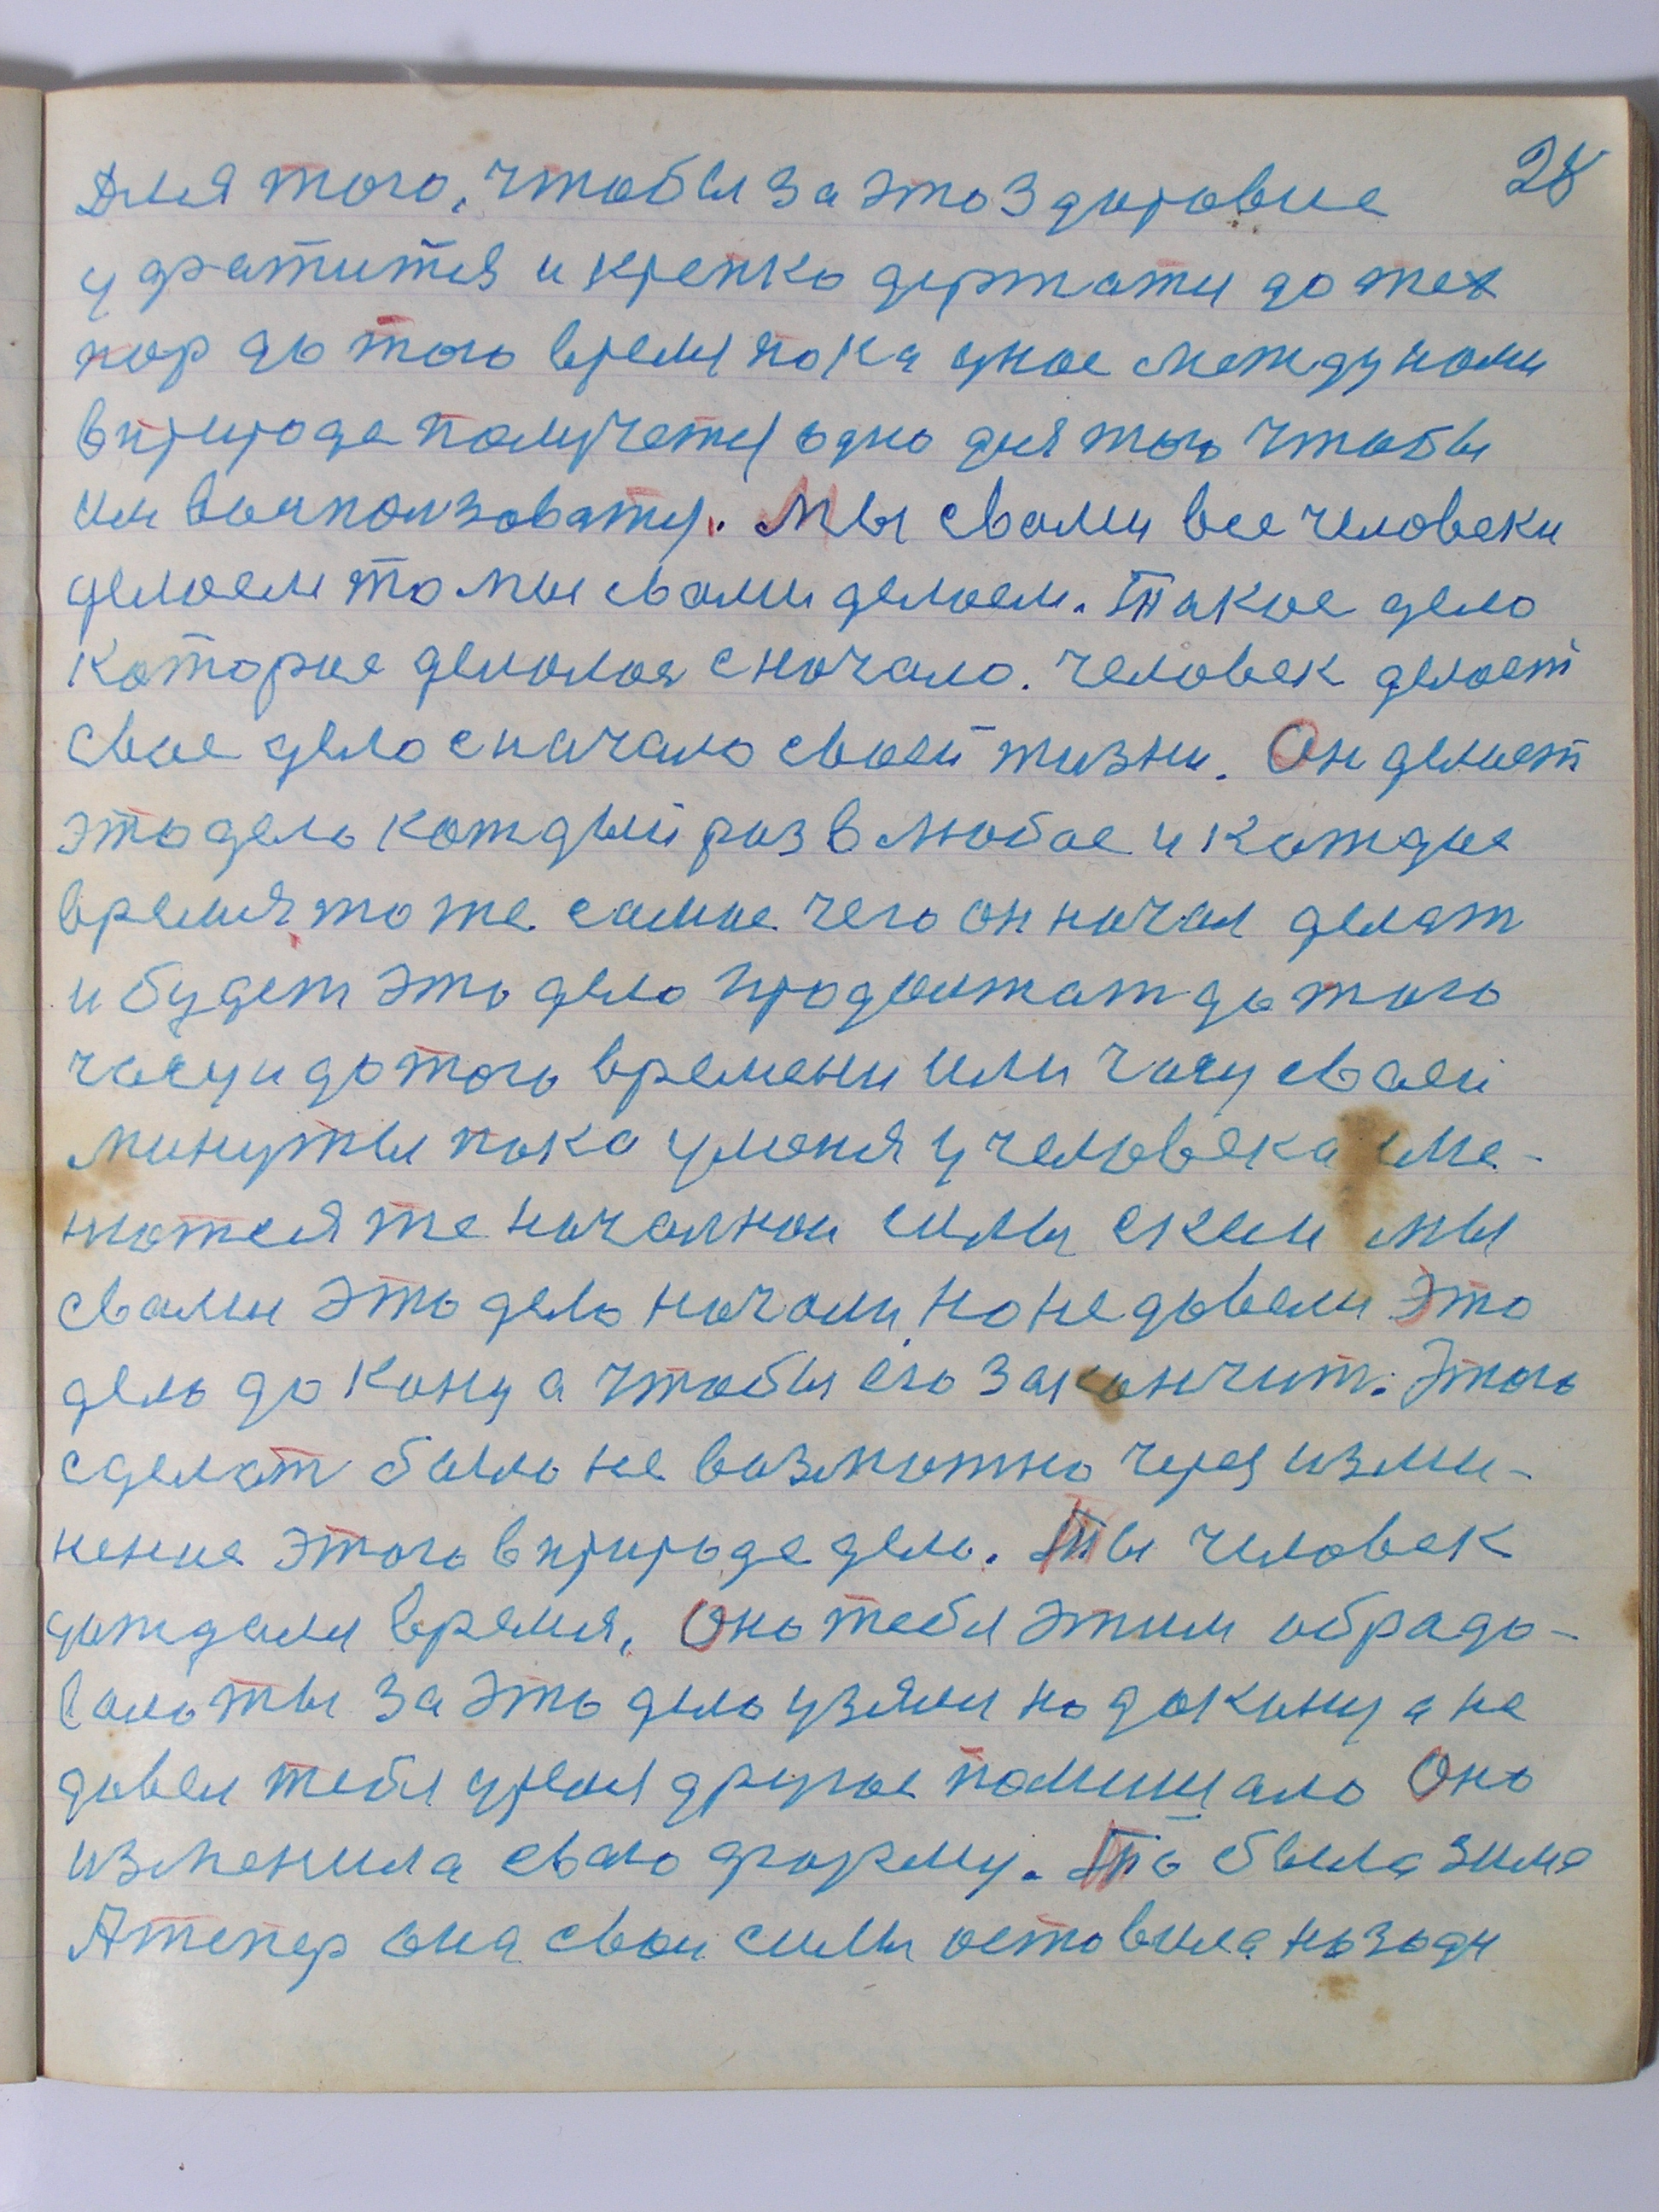 28
Для того, чтобы за это здоровие
ухватится и крепко держати до тех
пор до того время пока уное между нами
в природе получети одно для того чтобы
им выпользовати. Мы свами все человеки
делаем то мы свами делаем. Такое дело
которое делалоя сначало. человек делает
свое дело сначало своей жизни. Он делает
это дело каждый раз в любое и каждое
время то же самое чего он начал делат
и будет это дело продолжат до того
часу и до того времени или часу своей
минуты пока у меня у человека име-
ютсия те началнои силы с ким мы
свами это дело начали но не довели это
дело до конца чтобы его закончит. Этого
сделат было не возможно через изми-
нение этого в природе дело. Ты человек
дождали время, Оно тебя этим обрадо-
вало ты за это дело узяли но до конца не
довел тебя время другое помишало Оно
изменила свою форму. То была зима
А тепер она свои силы оставила назади